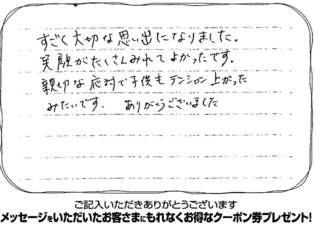 すごく大切な思い出になりました。
笑顔がたくさんみれてよかったです。
親切な応対で子供もテンション上がった
みたいです。 ありがとうございました
ご記入いただきありがとうございます
メッセージをいただいたお客さまにもれなくお得なクーポン券プレゼント!